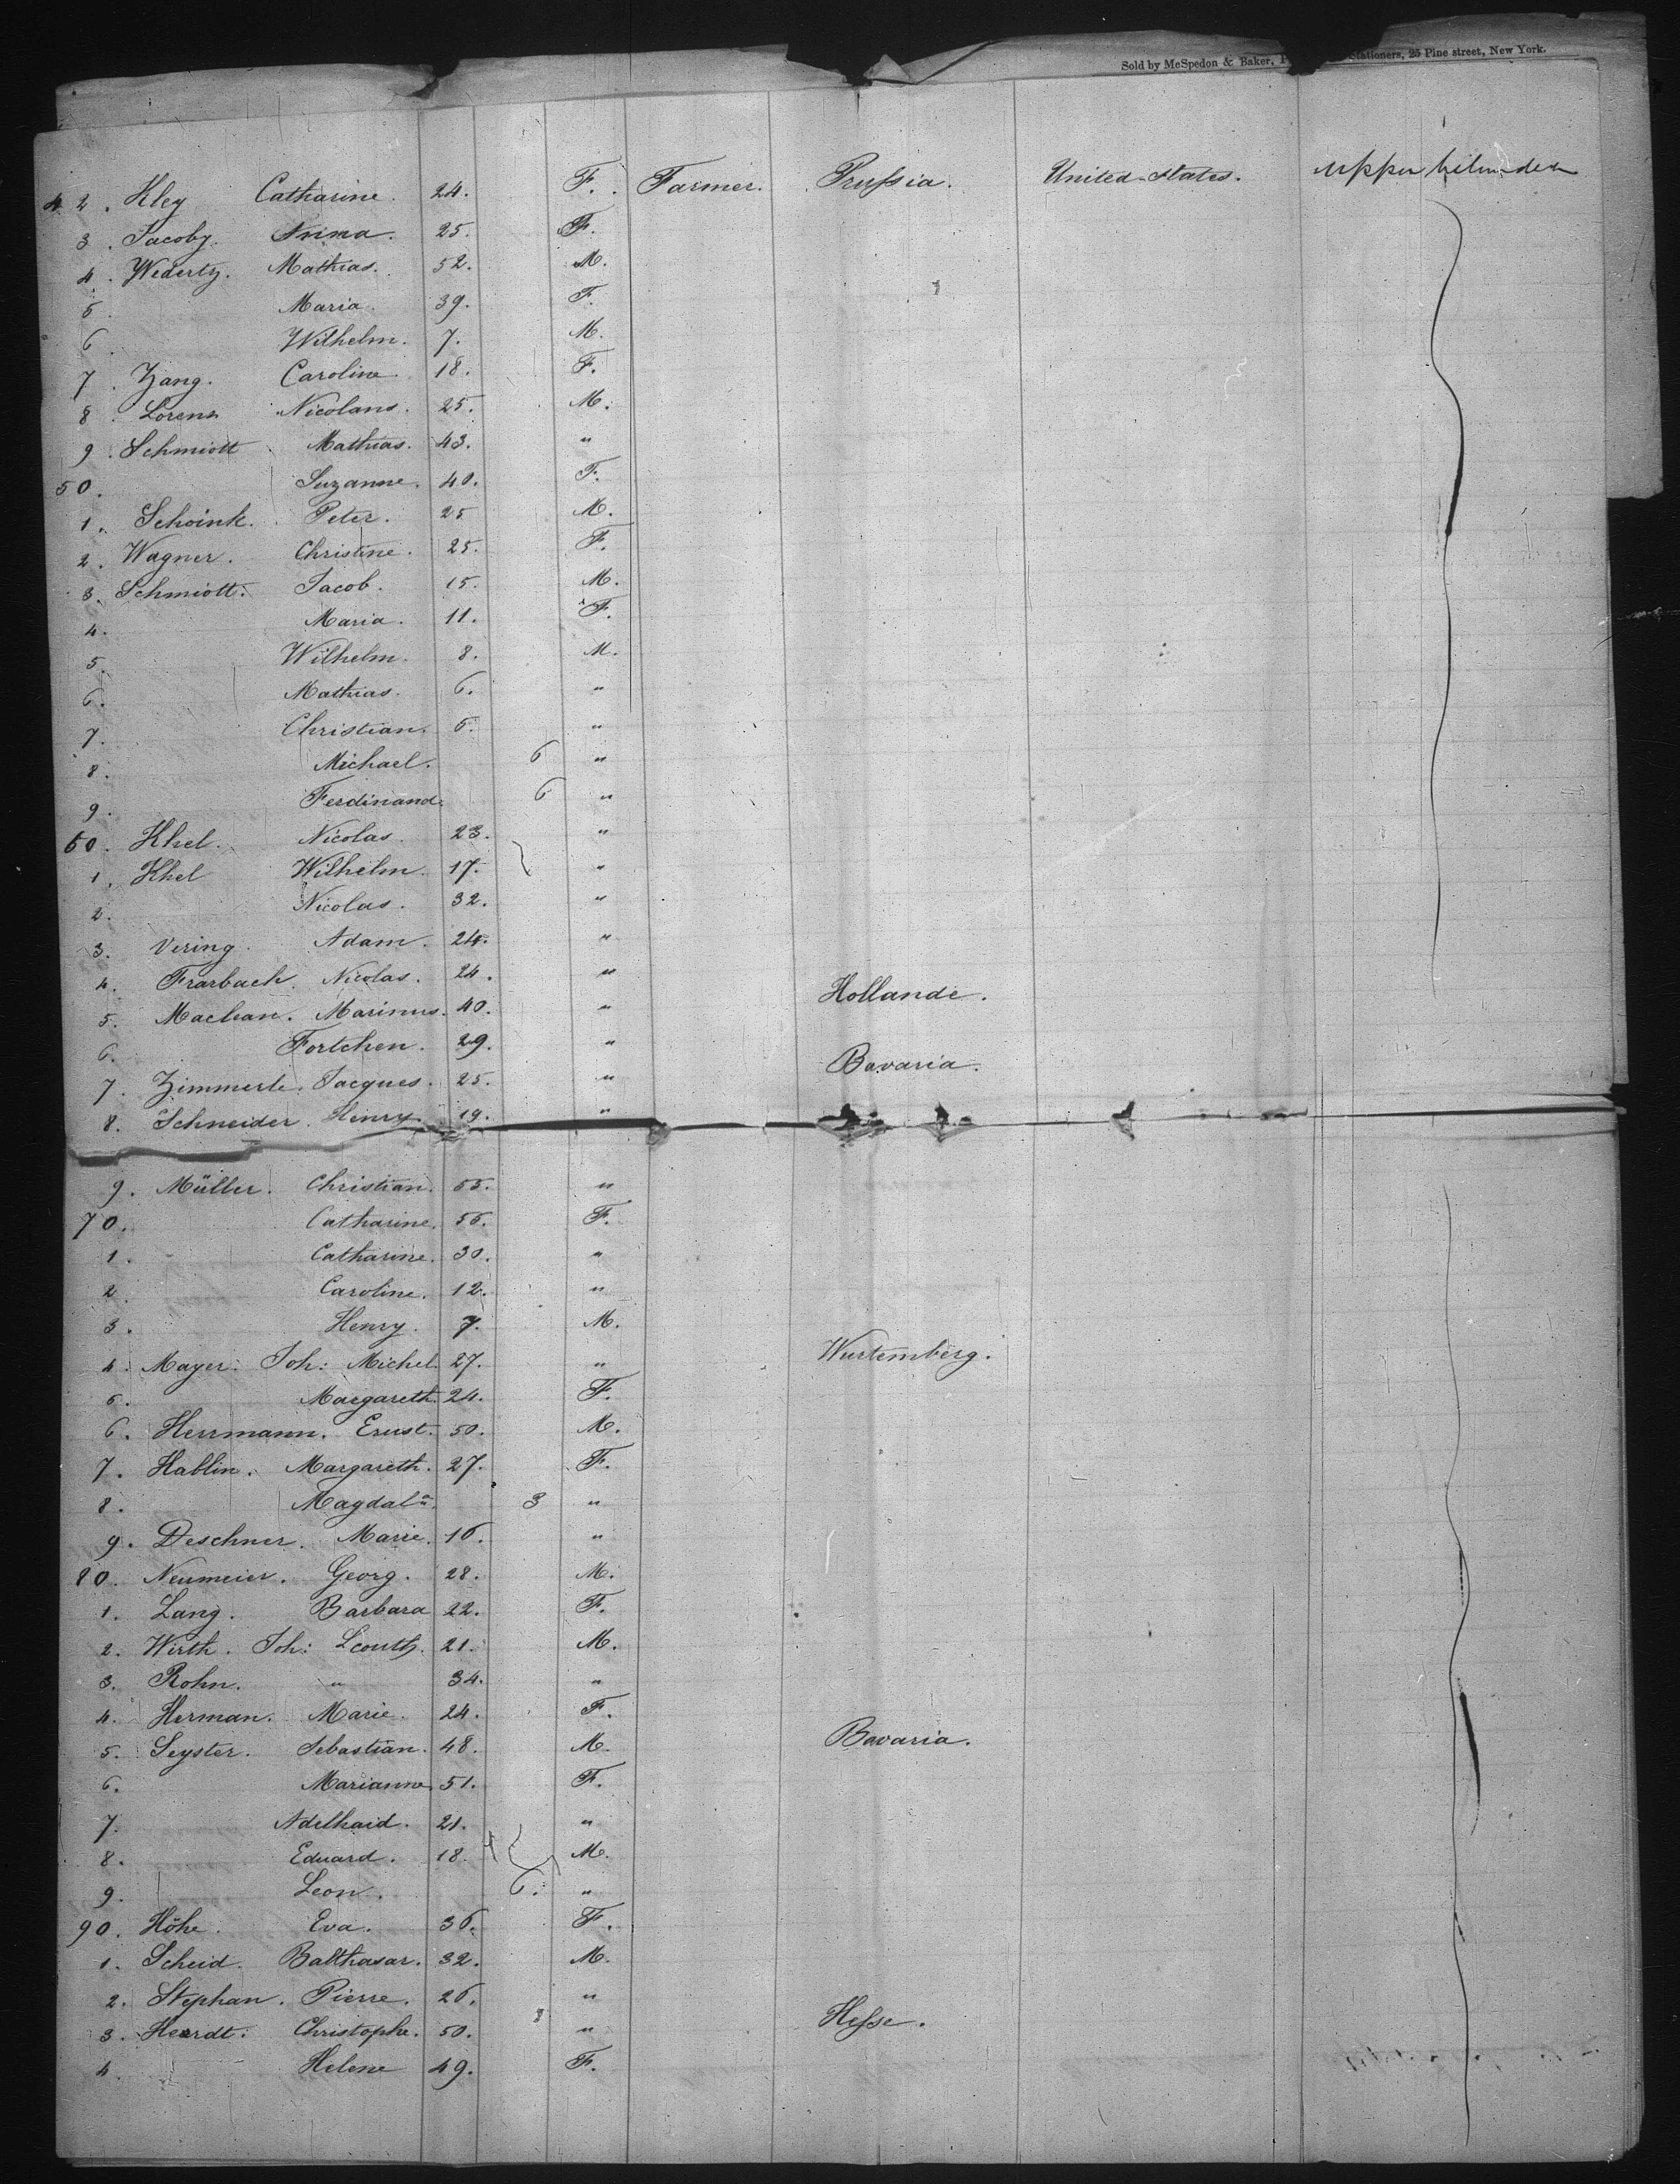 Sold by McSpedon & Baker, Stationers, 25 Pine street, New York.
42. Kley Catharine. 24. F. Farmer. Prussia. United States. upper between decks
3. Jacoby. 25. F.
4. Wedertz. Mathias. 52. M.
5. Maria. 39. F.
6. Wilhelm. 7. M.
7. Zang. Caroline. 18. F.
8. Lorenz Nicolaus. 25. M.
9. Schmidt Mathias. 43. "
50. Suzanne. 40. F.
1. Schoink. Peter. 25 M.
2. Wagner. Christine. 25. F.
3. Schmidt. Jacob. 15. M.
4. Maria. 11. F.
5. Wilhelm. 8. M.
6. Mathias. 6. "
7. Christian. 6. "
8. Michael. 6 "
9. Ferdinand. 6 "
60. Khel. Nicolas. 23. "
1. Khel Wilhelm. 17. "
2. Nicolas. 32. "
3. Vering. Adam. 24. "
4. Frarbach. Nicolas. 24. "
5. Maclean. Marinus. 40. " Hollande.
6. Fortchen. 29. "
7. Zimmerle. Jacques. 25. " Bavaria.
8. Schneider. Henry. 19. "
9. Müller. Christian. 55. "
70. Catharine. 56. F.
1. Catharine. 30. "
2. Caroline. 12. "
3. Henry. 7. M.
4. Mayer. Joh: Michel. 27. " Wurtemberg.
5. Margareth. 24. F.
6. Herrmann. Ernst. 50. M.
7. Hablin. Margareth. 27. F.
8. Magdalª. 3 "
9. Deschner. Marie. 16. "
80. Neumeier. Georg. 28. M.
1. Lang. Barbara 22. F.
2. Wirth. Joh: 21. M.
3. Rohn. " 34. "
4. Herman. Marie. 24. F.
5. Seyster. Sebastian. 48. M. Bavaria.
6. Marianne 51. F.
7. Adelhaid. 21. "
8. Eduard. 18. M.
9. Leon. 6. "
90. Höhe. Eva. 36. F.
1. Scheid. Balthasar. 32. M.
2. Stephan. Pierre. 26. "
3. Heardt. Christophe. 50. " Hesse.
4. Helene 49. F.